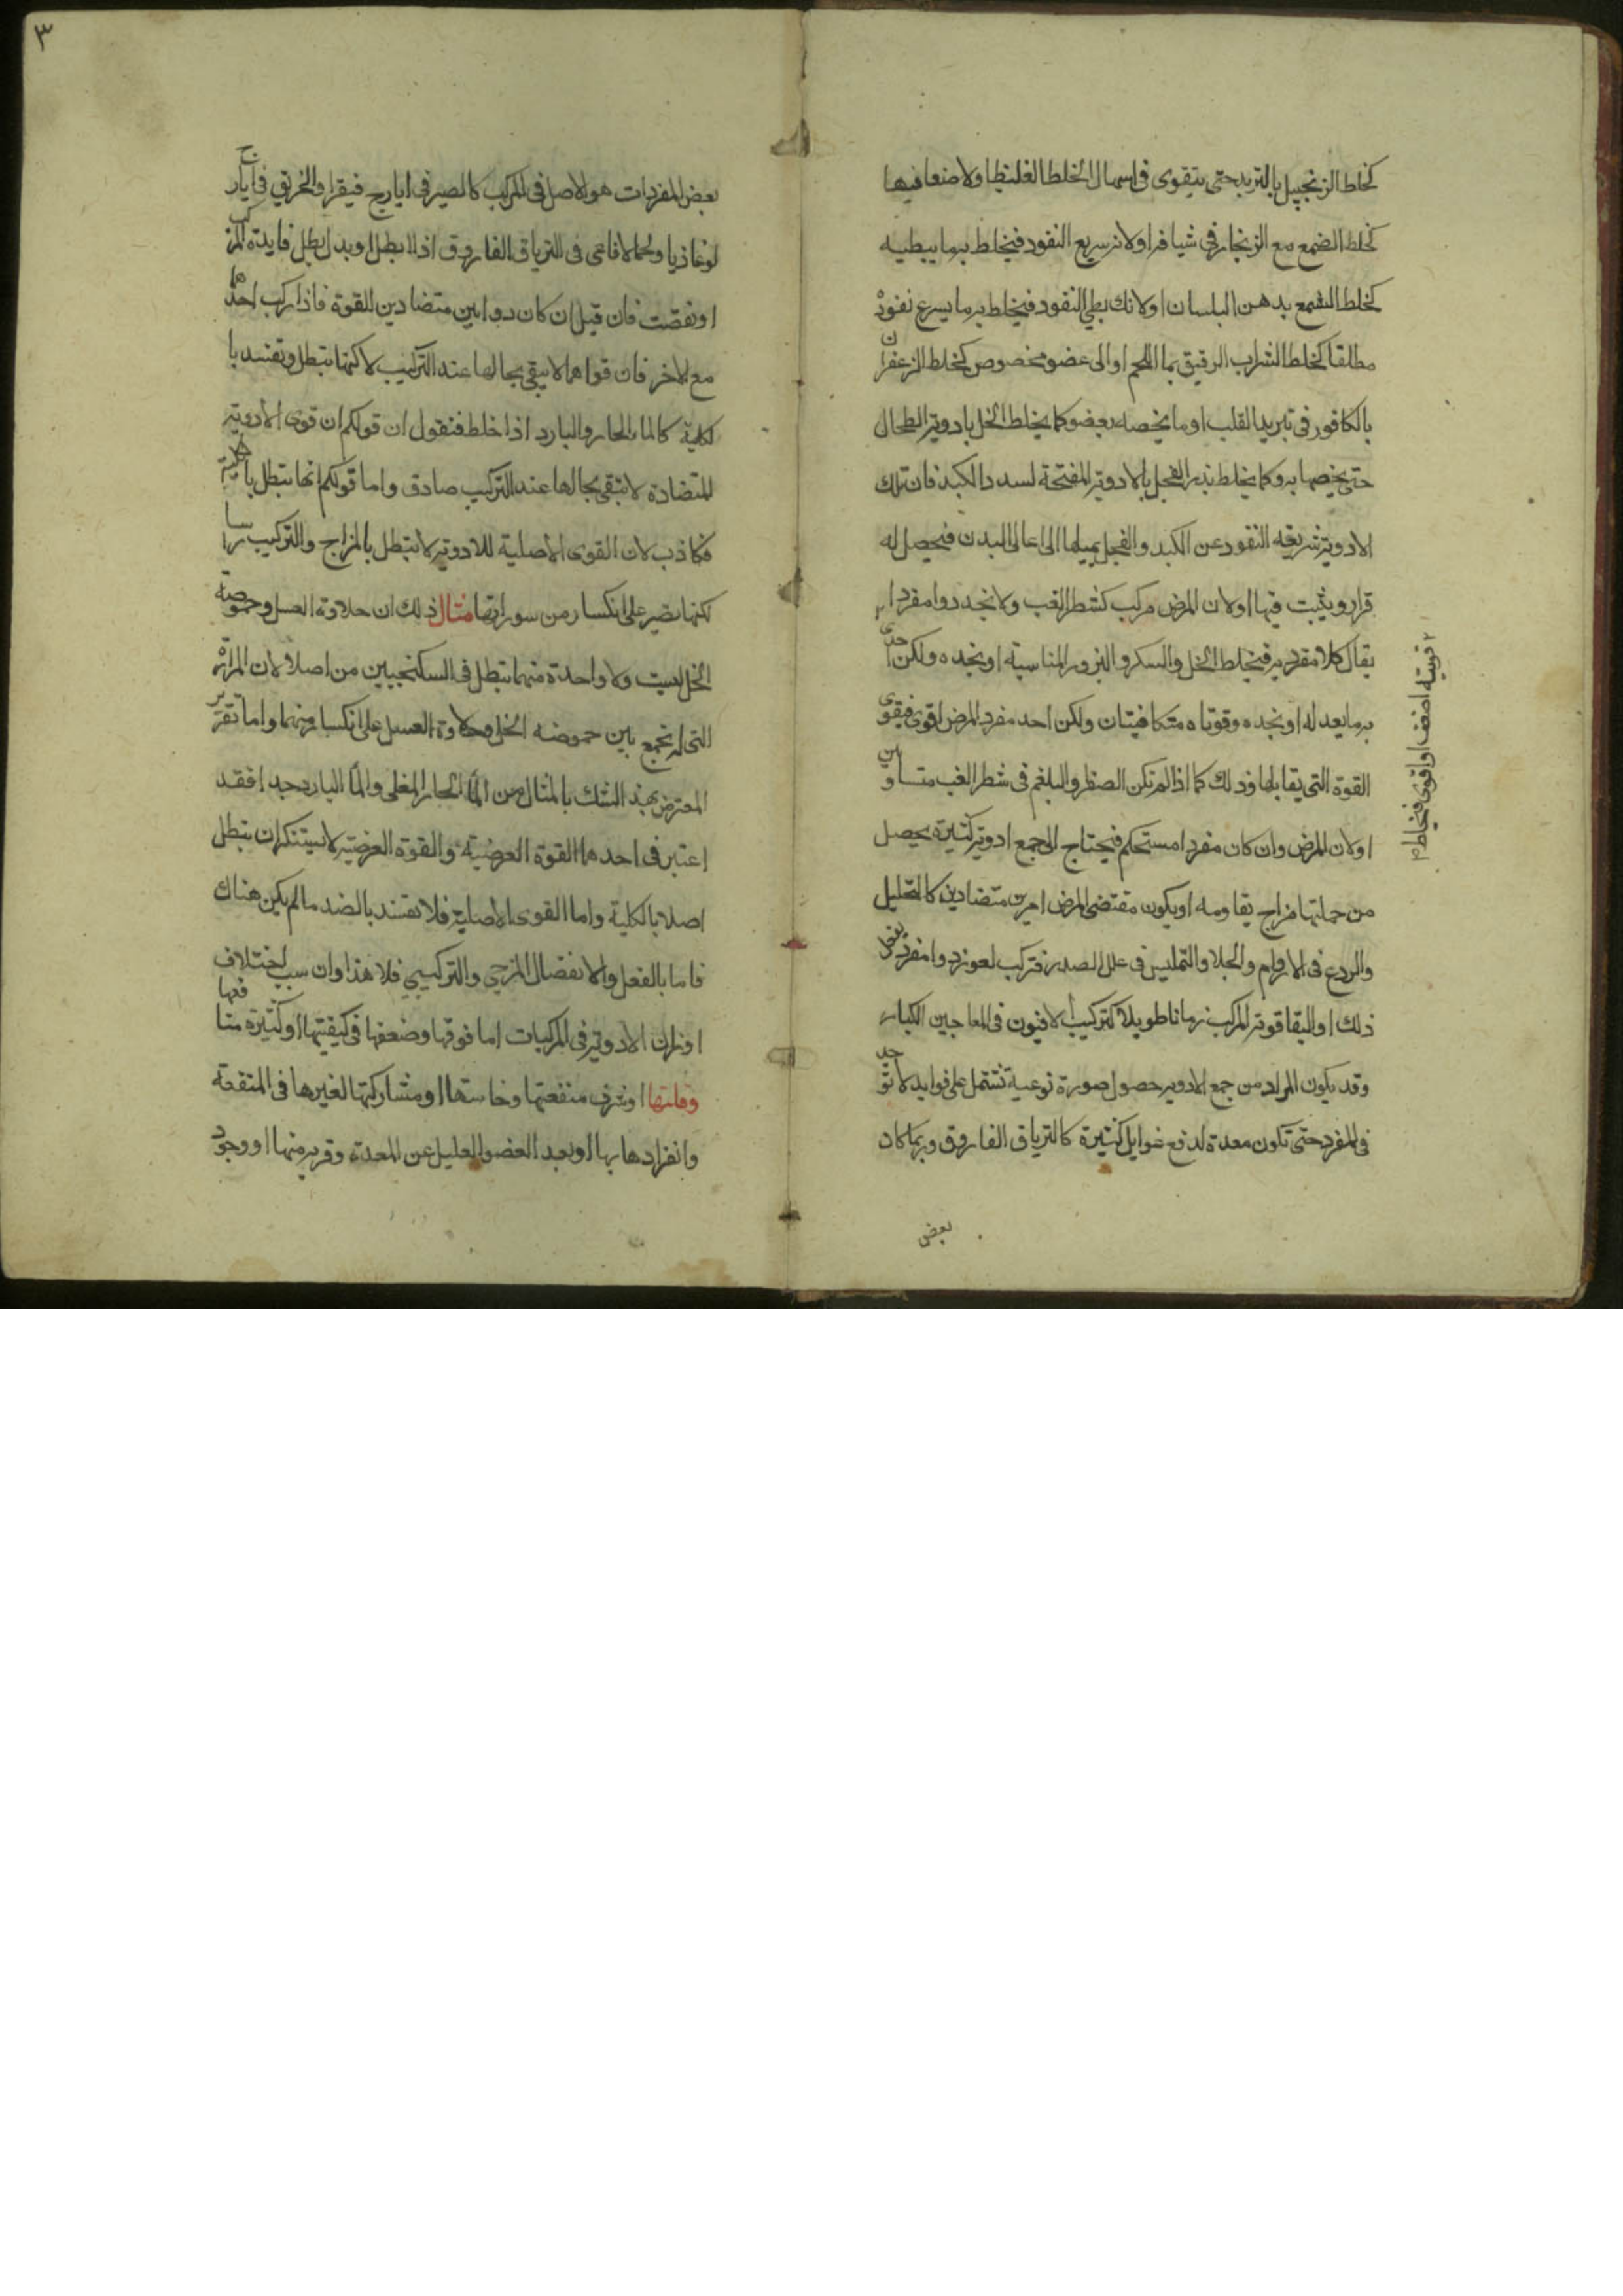 كخلط الزنجبيل بالتربد حتى يتقوى فى اسهال الخلط الغليظ اولاضعافيها
كخلط الصمغ مع الزنجار فى شيافز اولانه سريع النفود فيخلط بها يبطيه
كخلط الشمع بدهن البلسان اولانك بطى النفود فيخلط به ما يسرع نفوذه
مطلقا كخلط الشراب الرقيق بما اللحم او الى عضو مخصوص كخلط الزعفران
بالكافور فى تبريد القلب او ما يخصه بعضو كما يخلط الخل بادوية الطحال
حتى يخصها به وكما يخلط بذر الفجل بالادوية المفتحة لسدد الكبد فان تلك
الادوية سريعه النفود عن الكبد والفجل يميلها الى اعالى البدن فيحصل له
قرار ويثبت فيها اولان المرض مركب كشطر الغب ولا نجد دوا مفردا
يقال كلا مفرديه فيخلط الخل والسكر والبزور المناسبة او نجده ولكن احدى
قوتيه اضعف او اقوى فيخلط
به ما يعدله او نجده وقوتاه متكافيتان ولكن احد مفرد المرض اقوى فيقوى
القوة التى يقابلها وذلك كما اذا لم تكن الصفرا والبلغم فى شطر الغب متساويين
اولان المرض وان كان مفردا مستحكم فيحتاج الى جمع ادوية كثيرة يحصل
من جملتها مزاج يقاومه او يكون مقتضى المرض امرين متضادين كالتحليل
والردع فى الاورام والجلا والتمليس فى علل الصدر فتركب لعوز دوا مفرد يفعل
ذلك او لبقا قوة المركب زمانا طويلا كتركيب الافيون فى المعاجين الكبار
وقد يكون المراد من جمع الادوية حصول صورة نوعية تشتمل على فوايد لا توجد
فى المفرد حتى تكون معدة لدفع غوايل كثيرة كالترياق الفاروق وربما كان
بعض
٣
بعض المفردات هو الاصل فى المركب كالصبر فى ايارج فيقرا والخربق فى ايارج
لوغاذيا ولحم الافاعى فى الترياق الفاروق اذ لا بطل او بدل بطل فايدة المركب
او نقصت فان قيل ان كان دوايين متضادين القوة فاذا ركب احدهما
مع الاخر فان قواهما لا يبقى بحالها عند التركيب لا كنها تبطل وتفسد با
لكلية كالماء الحار والبارد اذا خلط فنقول ان قولكم ان قوى الادوية
المتضادة لا تبقى بحالها عند التركيب صادق واما قولكم انها تبطل بالكلية
فكاذب لان القوى الاصلية للادوية لا تبطل بالمزاج والتركيب راسا
لكنها تصير على انكسار من سوراتها مثال ذلك ان حلاوة العسل وحموضة
الخل ليست ولا واحدة منهما تبطل فى السكنجبين من اصلا لان المرارة
التى لم تجمع بين حموضه الخل وحلاوة العسل على انكسار منهما واما تقرير
المعترض بهذ الشك بالمثال من الماّ الحار المغلى والماّ البارد جدا فقد
اعتبر فى احدها القوة العرضية والقوة العرضية لا يستنكر ان تبطل
اصلا بالكلية واما القوى الاصلية فلا تفسد بالضد ما لم يكن هناك
فاما بالفعل والانفصال المزجي والتركيبي فلا هذا وان سبب اختلاف
اوزان الادوية فى المركبات اما قوتها وضعفها فى كيفيتها او كثيرة منافعها
وقلتها او شرف منفعتها وخاستها او مشاركتها لغيرها فى المنفعة
وانفرادها بها او بعد العضو العليل عن المعدة وقربه منها او وجود